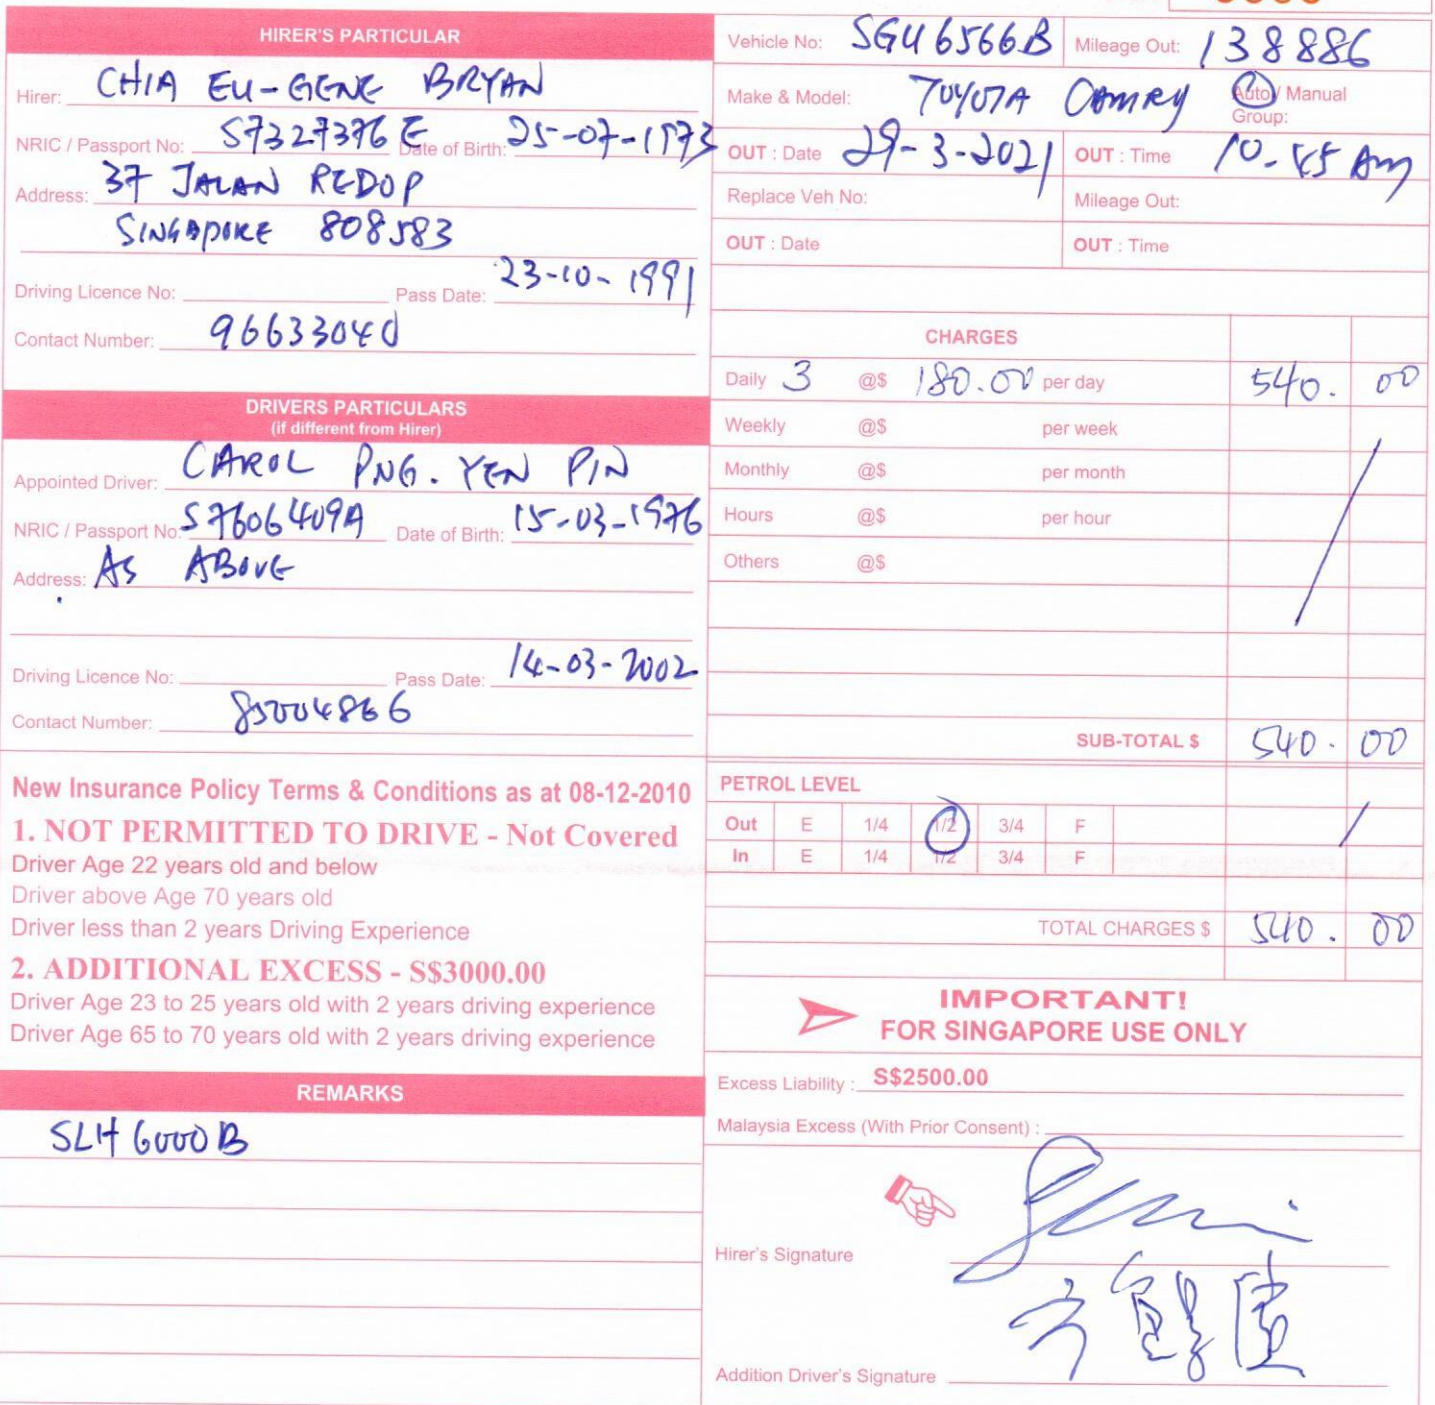 HIRER'S PARTICULAR
Hirer: CHIA EU-GENE BRYAN
NRIC / Passport No: S7327376E Date of Birth: 25-07-1973
Address: 37 JALAN REDOP
SINGAPORE 808583
Driving Licence No: Pass Date: 23-10-1991
Contact Number: 96633040
DRIVERS PARTICULARS
(if different from Hirer)
Appointed Driver: CAROL PNG. YEN PIN
NRIC / Passport No: S7606409A Date of Birth: 15-03-1976
Address: AS ABOVE
Driving Licence No: Pass Date: 14-03-2002
Contact Number: 85004866
New Insurance Policy Terms & Conditions as at 08-12-2010
1. NOT PERMITTED TO DRIVE - Not Covered
Driver Age 22 years old and below
Driver above Age 70 years old
Driver less than 2 years Driving Experience
2. ADDITIONAL EXCESS - S$3000.00
Driver Age 23 to 25 years old with 2 years driving experience
Driver Age 65 to 70 years old with 2 years driving experience
REMARKS
SLH 6000B
Vehicle No: SGU6566B Mileage Out: 138886
Make & Model: TOYOTA CAMRY Auto / Manual
Group:
OUT : Date 29-3-2021 OUT : Time 10.45 Am
Replace Veh No: Mileage Out:
OUT : Date OUT : Time
CHARGES
Daily 3 @$ 180.00 per day 540. 00
Weekly @$ per week
Monthly @$ per month
Hours @$ per hour
Others @$
SUB-TOTAL $ 540. 00
PETROL LEVEL
Out E 1/4 1/2 3/4 F
In E 1/4 1/2 3/4 F
TOTAL CHARGES $ 540. 00
IMPORTANT!
FOR SINGAPORE USE ONLY
Excess Liability : S$2500.00
Malaysia Excess (With Prior Consent) :
Hirer's Signature
Addition Driver's Signature